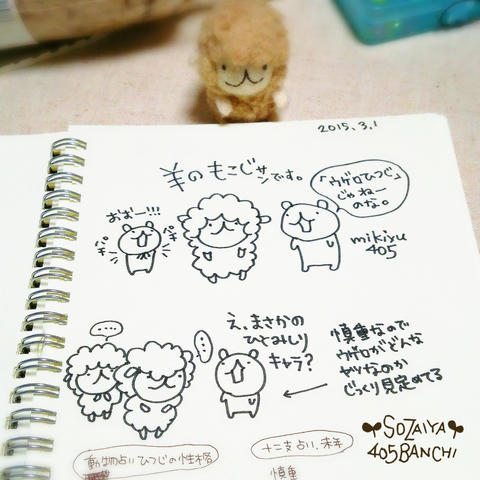 2015.3.1
羊のもこじサンです。
「ウゲロひつじ」
じゃねー
のな。
おおー!!!
パチ
パチ
パチ
mikiyu
405
え、まさかの
ひとみしり
キャラ?
慎重なので
ウゲロがどんな
ヤツなのか
じっくり見定めてる
動物占いひつじの性格
十二支占い、未年
慎重
SOZAIYA
405BANCHI